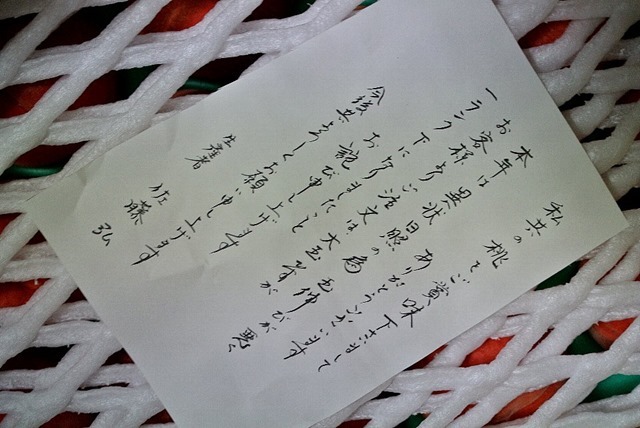 私共の桃をご賞味下さいまして
ありがとうございます
本年は異状日照の為玉伸びが悪く
お客様よりご注文の大玉等が
一ランク下になりましたこと
お詫び申し上げます
今後共よろしくお願い申し上げます
生産者 佐藤 弘